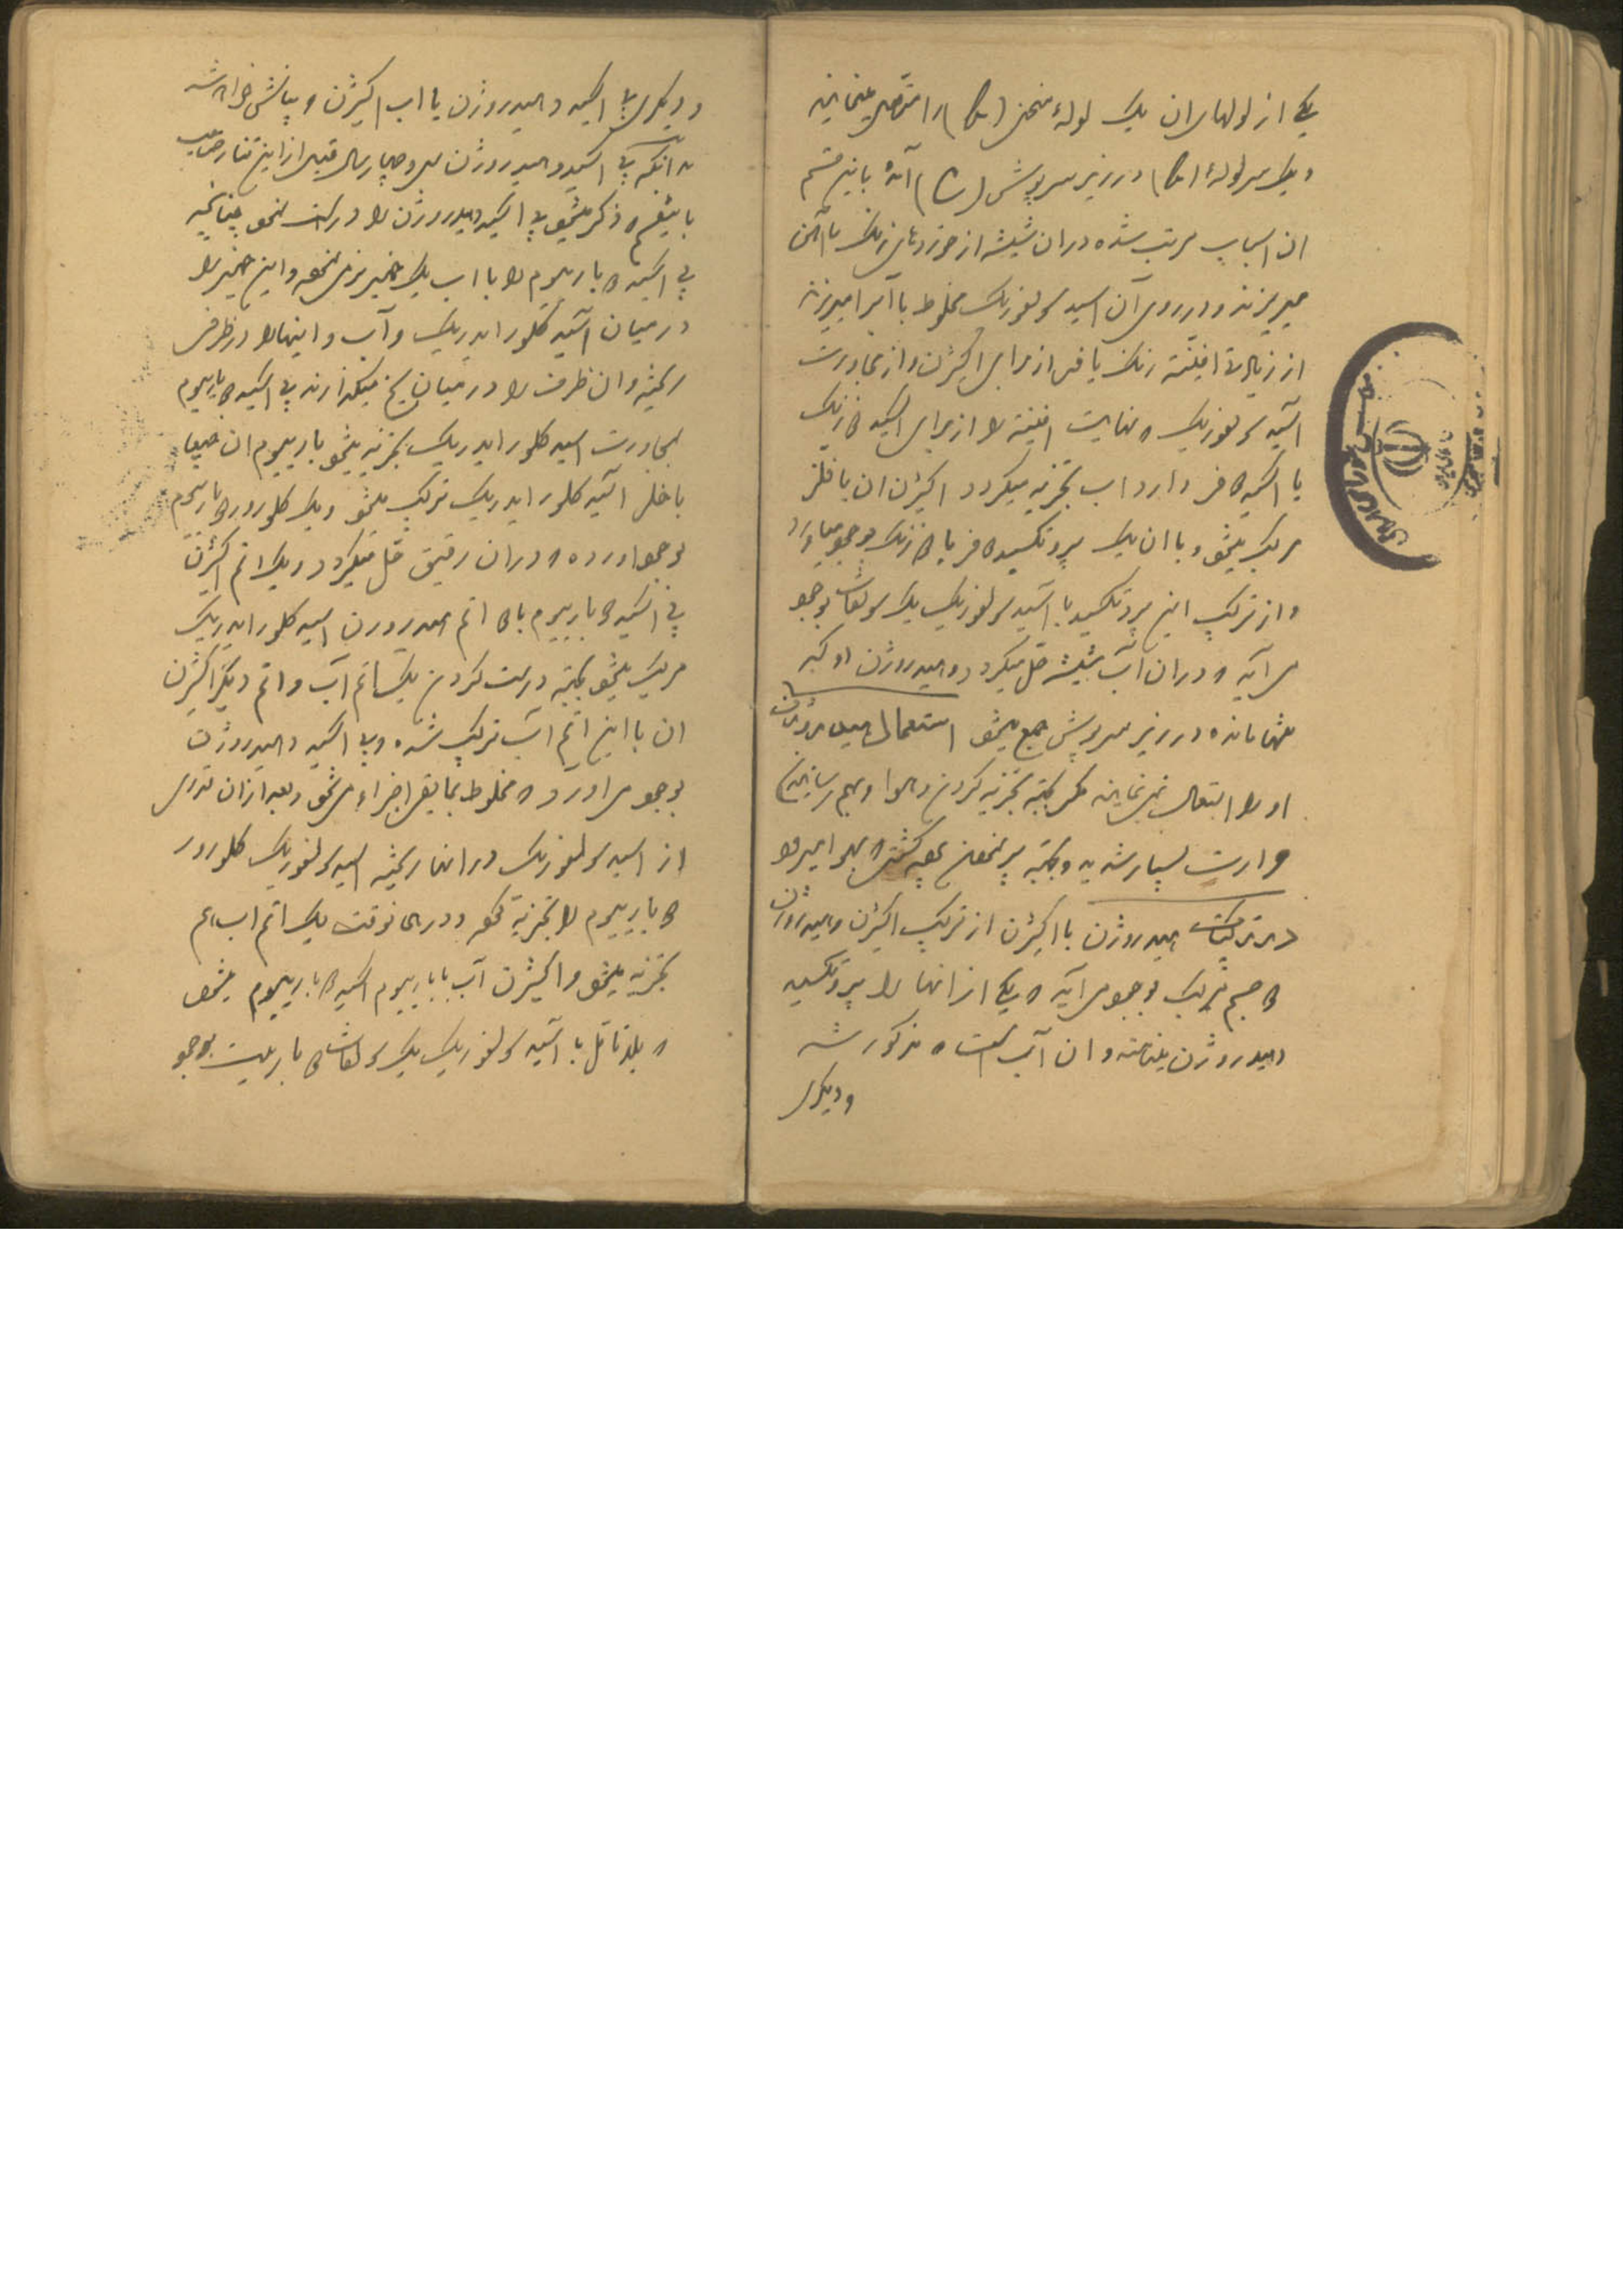 یکی از لولهای ان یک لوله منحنی را متصل مینمایند
و یک سر لوله در زیر سرپوش آمده باین قسم
ان اسباب مرتب شده در ان شیشه از خوردهای زنک یا آهن
میریزند و در روی آن اسید سولفوریک مخلوط با آب میریزند
از زیادتی افینته زنک یا فر از برای اکیژن و از مجاورت
اسید سولفوریک که نهایت افینته را از برای اکسید دزنک
یا اکسید دفر دارد اب تجزیه میکردد اکیژن ان با فلز
مرکب میشود و با ان یک پروتکسید دفر یا دزنک بوجود میاورد
و از ترکیب این پروتکسید با اسید سولفوریک یک سولفات بوجود
می آید که در ان آب شیشه حل میکردد و هیدروژن او که
تنها مانده در زیر سرپوش جمع میشود استعمال هیدروژن
او را استعمال نمی نمایند مکر بجهته تجزیه کردن هوا و بهم رسانیدن
حرارت بسیار شدید و بجهته پر نمودن بعضی کشتی که بهوا میرود
در ترکیبات هیدروژن با اکیژن از ترکیب اکیژن و هیدروژن
دو جسم مرکب بوجود می آید که یکی از انها را پروتکسید
دهیدروژن مینامند و ان آب است که مذکور شد
و دیکری
و دیکری پی اکسید دهیدروژن یا اب اکیژن و بیانش خواهد شد
بدانکه پی اکسید دهیدروژن سی و چهار سال قبل از این تنار صاحب
باینقسم که ذکر میشود پی اکسید دهیدروژن را درست نمود چنانچه
پی اکسید دباریوم را با اب یک خمیر نرمی نموده و این خمیر را
در میان اسید کلور ایدریک و آب و اینها را در ظرفی
ریخته و ان ظرف را در میان یخ میکذارند پی اکسید دباریوم
بمجاورت اسید کلور ایدریک تجزیه میشود باریوم ان
با کلر اسید کلور ایدریک ترکیب میشود و یک کلورور دباریوم
بوجود اورده که در ان رقیق حل میکردد و یک اتم اکیژن
پی اکسید دباریوم با دو اتم هیدروژن اسید کلور ایدریک
مرکب میشود بجهته درست کردن یک اتم آب و اتم دیکر اکیژن
ان با این اتم آب ترکیب شده و پی اکسید دهیدروژن
بوجود می اورد که مخلوط بمابقی اجزاء میشود و بعد از ان قدری
از اسید سولفوریک در انها ریخته اسید سولفوریک کلورور
دباریوم را تجزیه نموده و در همانوقت یک اتم اب هم
تجزیه میشود و اکیژن آب با باریوم اکسید دباریوم میشود
که بلاتامل با اسید سولفوریک یک سولفات دباریت بوجود